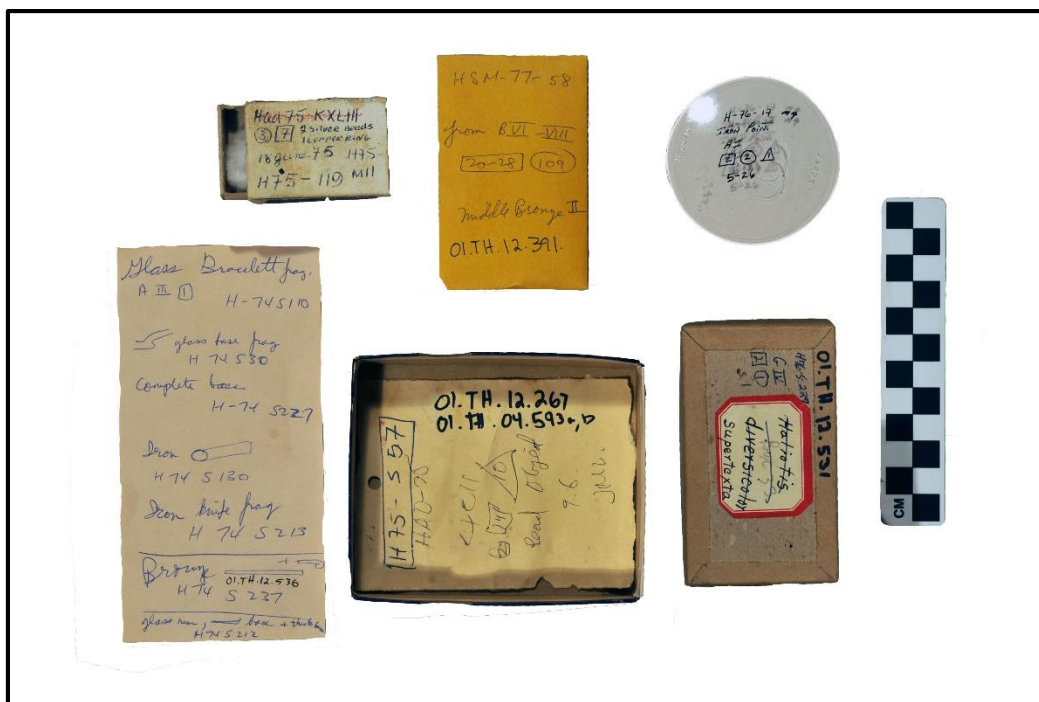 Had 75-KXLIII
③ 7 2 SILVER BEADS
1 COPPER RING
18 June-75 H75-
H75-119 M11
HSM-77-58
from B VI-VIII
20-28 109
Middle Bronze II
01.TH.12.391.
H-76-17
IRON POINT
A I
2 2 1
5-26
5-26
Glass Bracelett frag.
A III 1 H-74S110
glass base frag
H 74 S30
Complete base
H-74 S227
Iron
H 74 S130
Iron knife frag
H 74 S213
Bronze
01.TH.12.536
H74 S 237
glass rim, base +
H74 S212
01.TH.12.267
01.TH.04.593a,b
H75-S 57
10
lead object
9.6.
01.TH.12.531
C IV
2 1
S-1
Haliotis
diversicolor
supertexta
CM